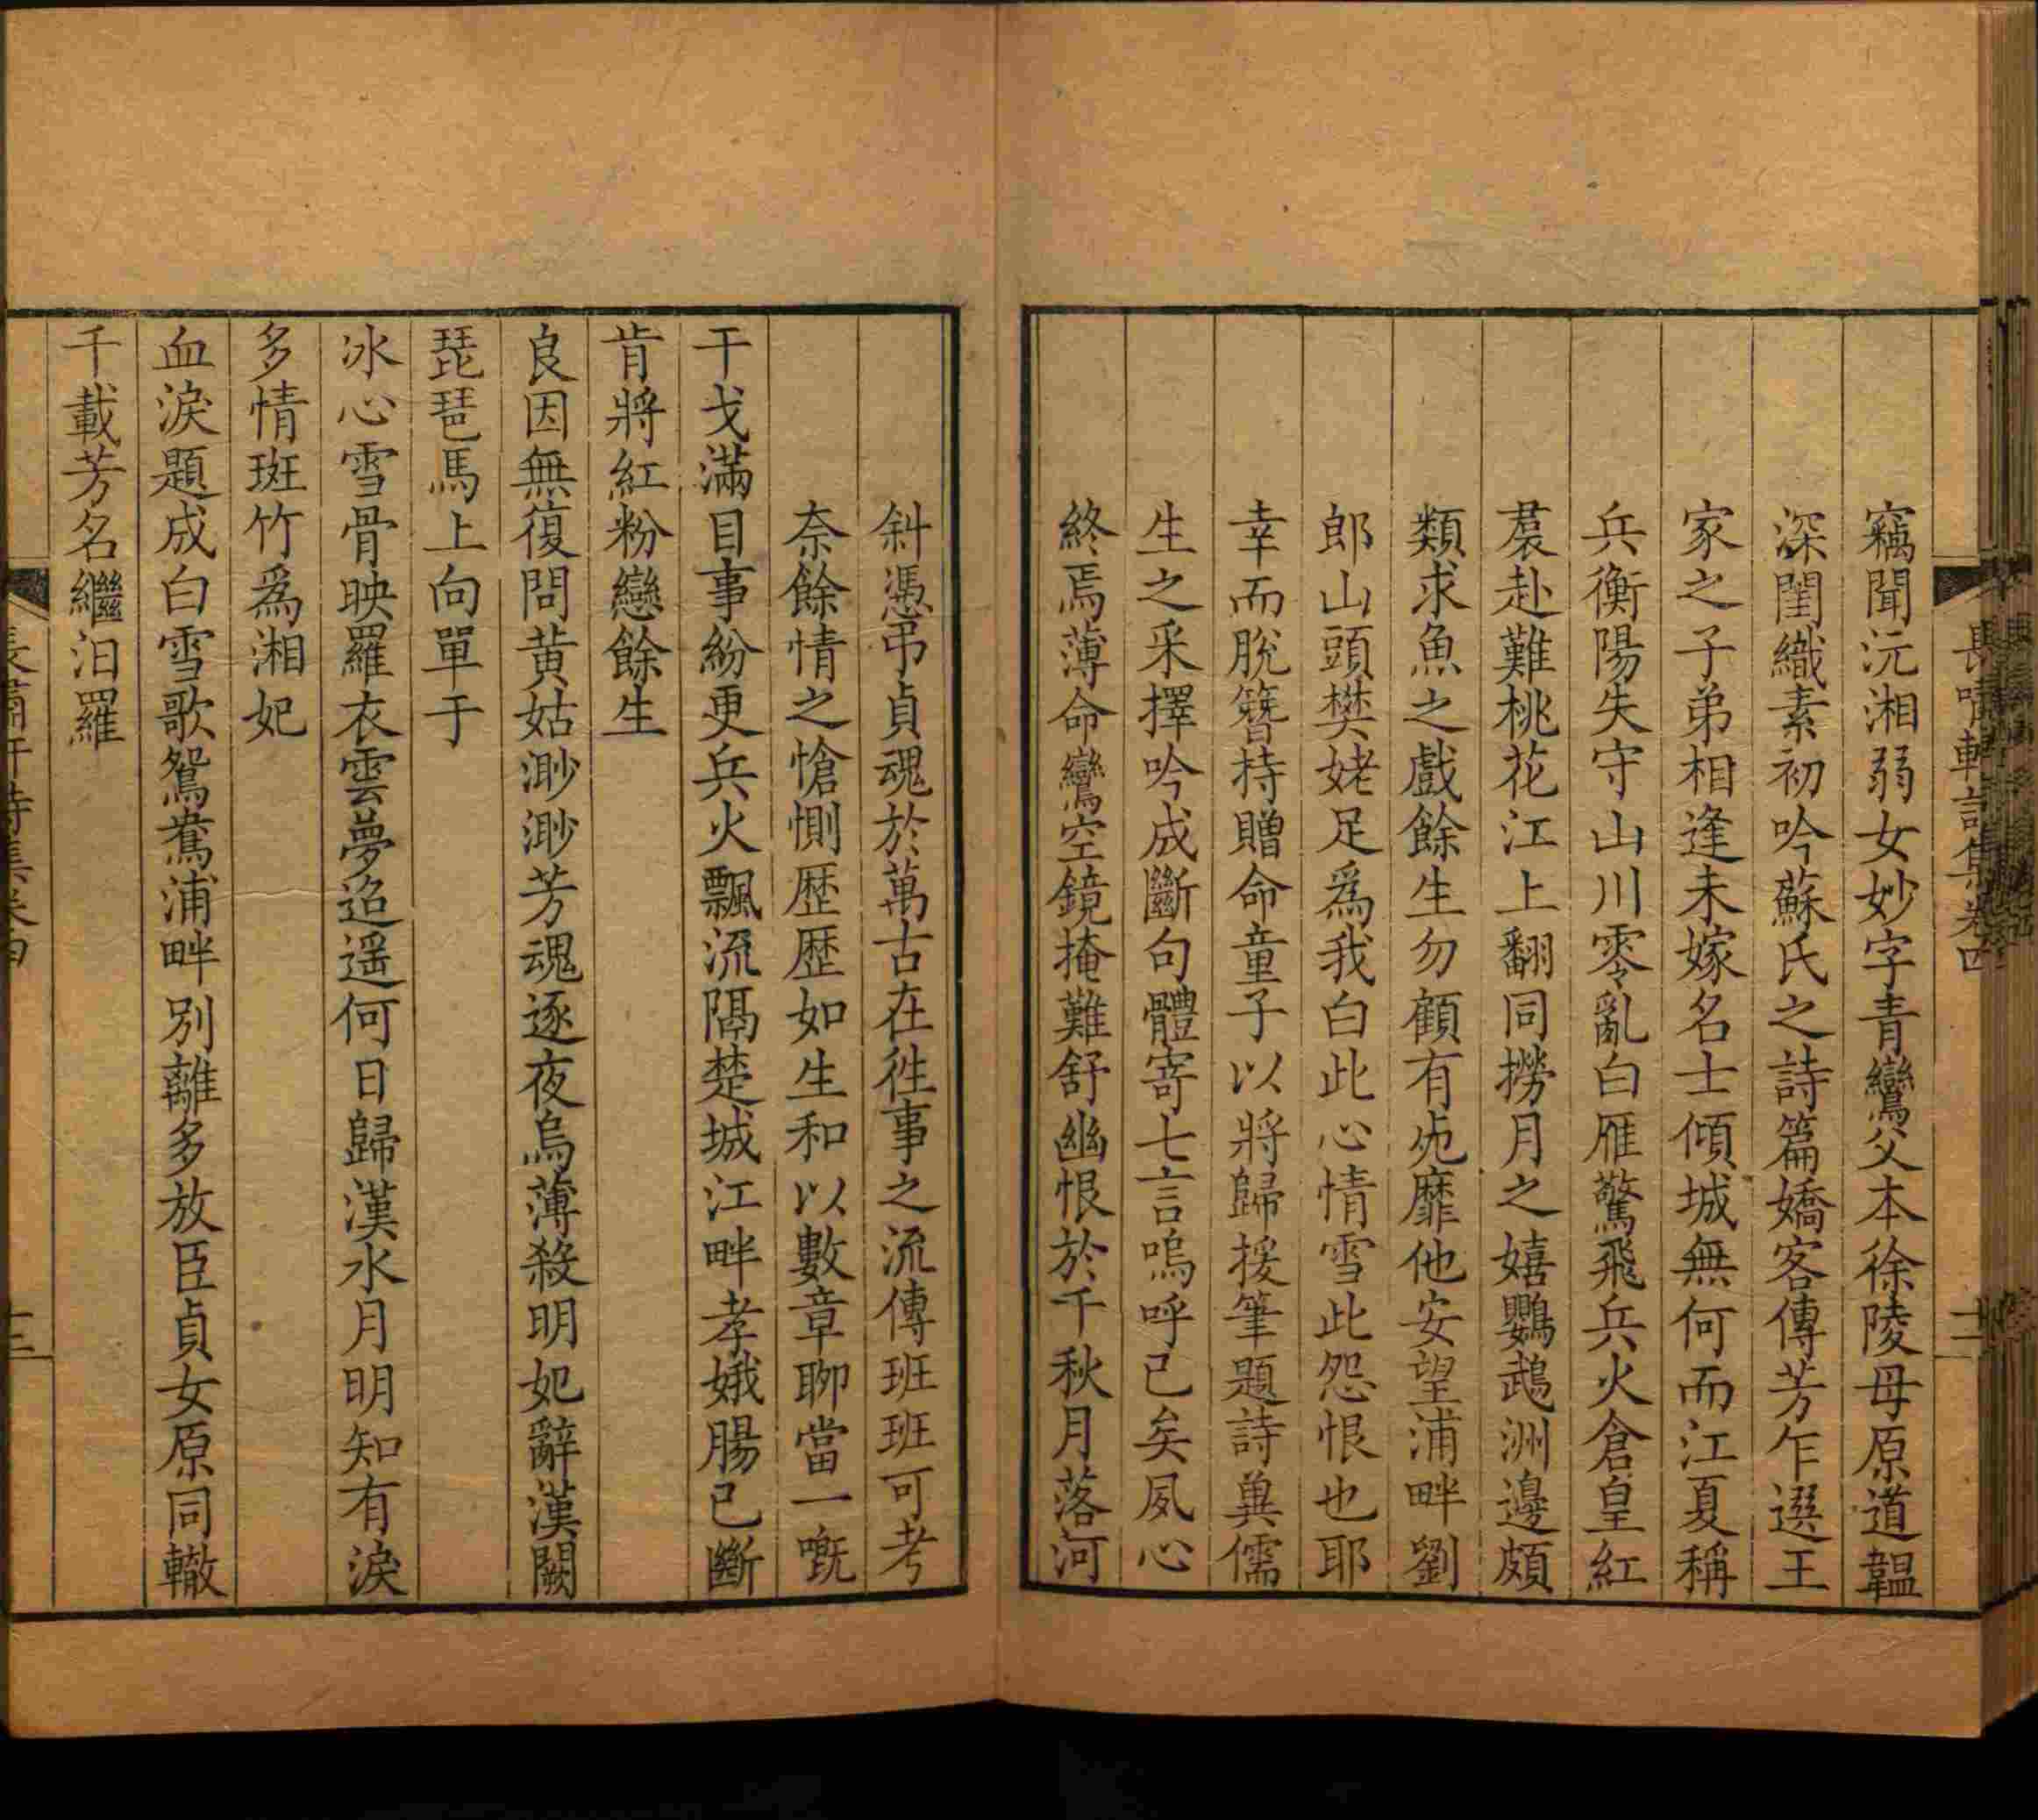 長嘯軒詩集卷四
十二
竊聞沅湘弱女妙字青鸞父本徐陵母原道韞
深閨織素初吟蘇氏之詩篇嬌客傳芳乍選王
家之子弟相逢未嫁名士傾城無何而江夏稱
兵衡陽失守山川零亂白雁驚飛兵火倉皇紅
裙赴難桃花江上翻同撈月之嬉鸚鵡洲邊頗
類求魚之戲餘生勿顧有死靡他安望浦畔劉
郎山頭樊姥足為我白此心情雪此怨恨也耶
幸而脫簪持贈命童子以將歸援筆題詩冀儒
生之采擇吟成斷句體寄七言嗚呼已矣夙心
終焉薄命鸞空鏡掩難舒幽恨於千秋月落河
斜憑弔貞魂於萬古在徃事之流傳班班可考
奈餘情之愴惻歷歷如生和以數章聊當一嘅
干戈滿目事紛更兵火飄流隔楚城江畔孝娥腸已斷
肯將紅粉戀餘生
良因無復問黃姑渺渺芳魂逐夜烏薄殺明妃辭漢闕
琵琶馬上向單于
冰心雪骨映羅衣雲夢迢遥何日歸漢水月明知有淚
多情斑竹爲湘妃
血淚題成白雪歌鴛鴦浦畔別離多放臣貞女原同轍
千載芳名繼汨羅
長嘯軒詩集卷四
十三